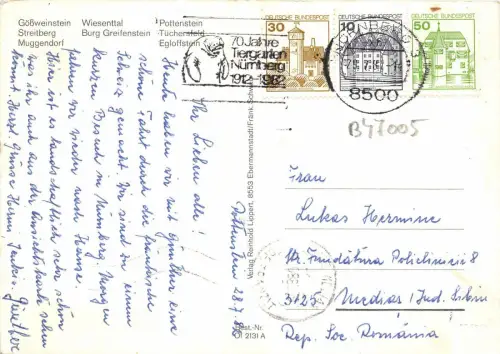 Gößweinstein Wiesenttal Pottenstein
Streitberg Burg Greifenstein Tüchersfeld
Muggendorf Egloffstein
70 Jahre
Tiergarten
Nürnberg
1912-1982
30 DEUTSCHE BUNDESPOST
10 DEUTSCHE BUNDESPOST
50 DEUTSCHE BUNDESPOST
NÜRNBERG
8500
B47005
Pottenstein 28.7.82
Ihr Lieben alle!
Heute haben wir mit Günther eine
schöne Fahrt durch die fränkische
Schweiz gemacht. Wir sind zu einem
kurzen Besuch in Nürnberg. Morgen
fahren wir wieder nach Hause.
Hier ist es landschaftlich sehr schön
was ihr auch aus der Ansichtskarte sehen
könnt. Herzl. Grüsse Günther
Verlag Reinhold Lippert, 8553 Ebermannstadt/Fränk. Schweiz
Best.-Nr.
2131 A
Frau
Lukas Hermine
Str. Fundătura Policlinicii 8
3125 Mediaș / Jud. Sibiu
Rep. Soc. România